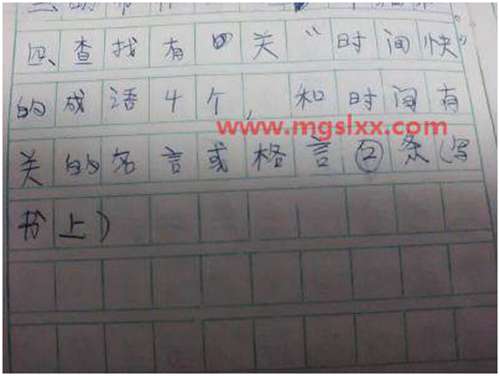 四、查找有关“时间快”
的成语4个,和时间有
www.mgslxx.com
关的名言或格言②条(写
书上)